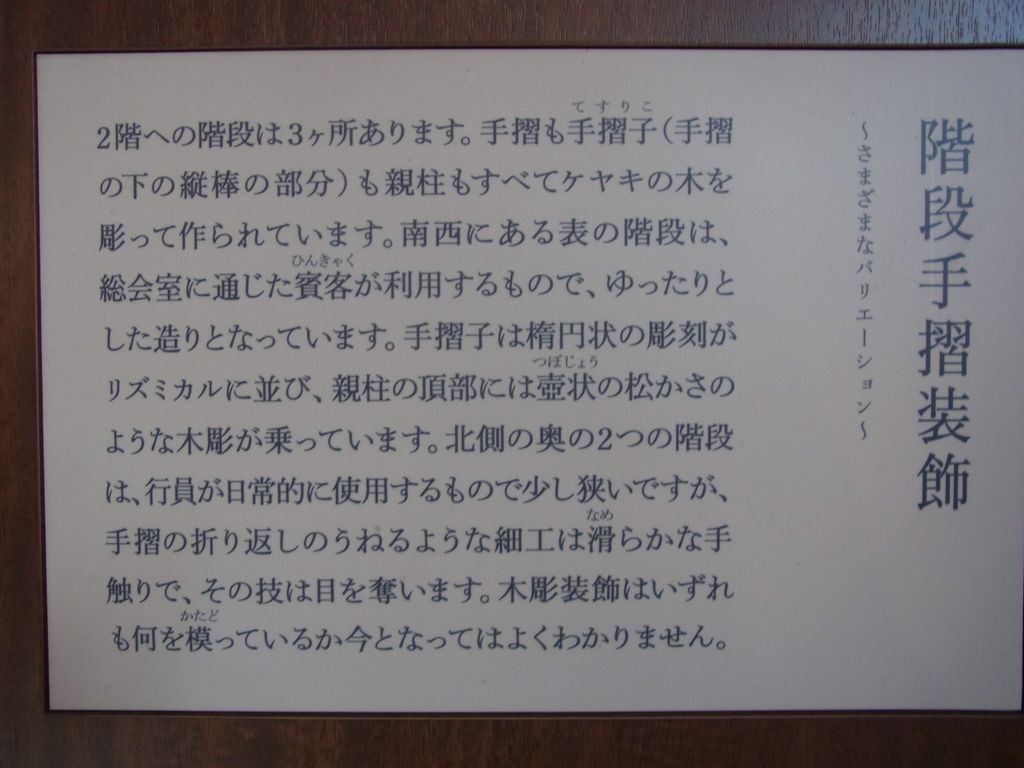 階段手摺装飾
～さまざまなバリエーション～
てすりこ
2階への階段は3ヶ所あります。手摺も手摺子（手摺
の下の縦棒の部分）も親柱もすべてケヤキの木を
彫って作られています。南西にある表の階段は、
ひんきゃく
総会室に通じた賓客が利用するもので、ゆったりと
した造りとなっています。手摺子は楕円状の彫刻が
つぼじょう
リズミカルに並び、親柱の頂部には壺状の松かさの
ような木彫が乗っています。北側の奥の2つの階段
は、行員が日常的に使用するもので少し狭いですが、
なめ
手摺の折り返しのうねるような細工は滑らかな手
触りで、その技は目を奪います。木彫装飾はいずれ
かたど
も何を模っているか今となってはよくわかりません。